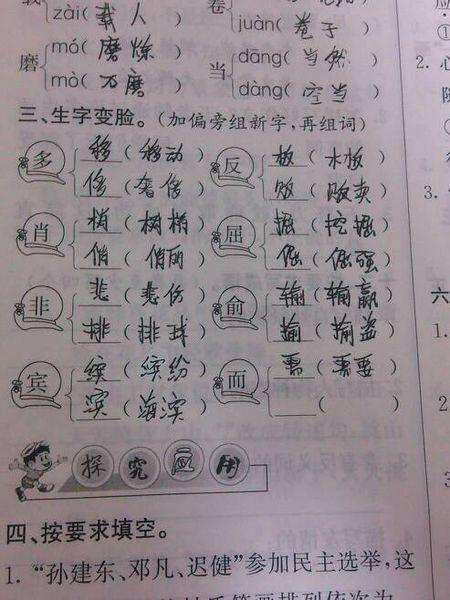 zài(载人) juàn(卷子)
磨 mó(磨炼) 当 dāng(当然)
mò(石磨) dàng(空当)
三、生字变脸。(加偏旁组新字,再组词)
多 移(移动) 反 板(木板)
侈(奢侈) 贩(贩卖)
肖 梢(树梢) 屈 掘(挖掘)
俏(俏丽) 倔(倔强)
非 悲(悲伤) 俞 输(输赢)
排(排球)
宾 缤(缤纷) 而 需(需要)
滨(海滨) ( )
探究应用
四、按要求填空。
1.“孙建东、邓凡、迟健”参加民主选举,这